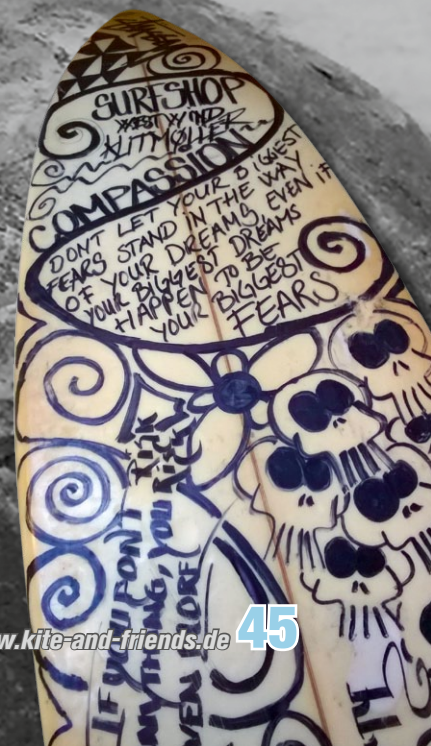 SURFSHOP
WEST WIND
KLITMØLLER
COMPASSION
DONT LET YOUR BIGGEST
FEARS STAND IN THE WAY
OF YOUR DREAMS EVEN IF
YOUR BIGGEST DREAMS
HAPPEN TO BE
YOUR BIGGEST
FEARS
IF YOU DON'T RISK
ANYTHING, YOU RISK
EVEN MORE
w.kite-and-friends.de 45